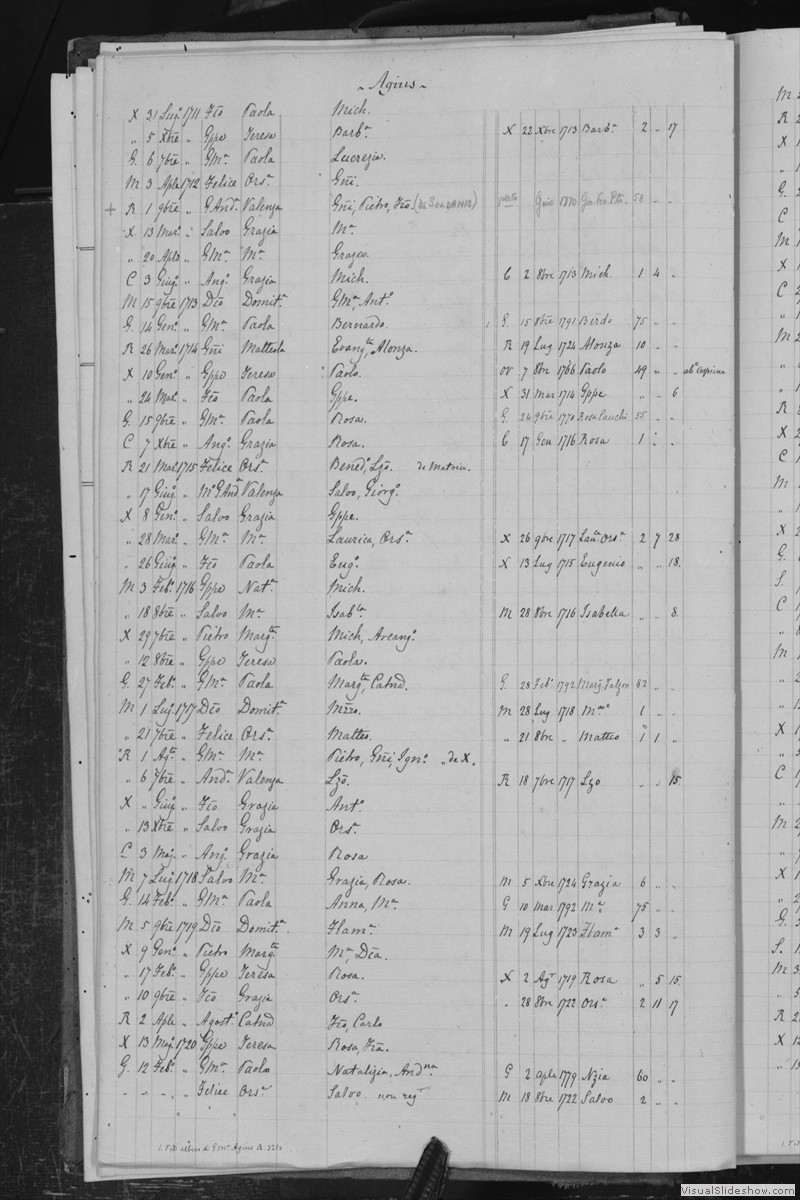 ~ Agius ~
X 31 Lug. 1711 Fco Paola Mich.
„ 5 Xbre „ Gppe Teresa Barb.a X 22 Xbre 1713 Barb.a 2 „ 17
G. 6 7bre „ GM.a Paola Lucrezia.
M 3 Aple 1712 Felice Ors.a Gni.
+ R 1 9bre „ G.And. Valenza Gni, Pietro, Fco. (DE SOLDANIS) 1770 58 „ „
X 13 Mar. „ Salvo Grazia M.a
„ 20 Aple „ GM.a M.a Grazio.
C 3 Giug. „ Ang. Grazia Mich. C 2 8bre 1713 Mich. 1 4 „
M 15 9bre 1713 Dco Domit.a GM.a, Ant.o
G. 14 Gen. „ GM.a Paola Bernardo. 1 G. 15 8bre 1791 Berdo 75 „ „
R 26 Mar. 1714 Gni Matteola Evang.ta, Alonza. R 19 Lug 1724 Alonza 10 „ „
X 10 Gen. „ Gppe Teresa Paolo. ov 7 8bre 1766 Paolo 49 „ „
„ 24 Mar. „ Fco Paola Gppe. X 31 Mar 1714 Gppe „ „ 6
G. 15 9bre „ GM.a Paola Rosa. G. 24 9bre 1770 Rosa Cauchi 55 „ „
C 7 Xbre „ Ang.o Grazia Rosa. C 17 Gen 1716 Rosa 1 „ „
R 21 Mar. 1715 Felice Ors.a Bened.o, Lzo. de Matria.
„ 17 Giug. „ M.o G.And. Valenza Salvo, Giorg.o
X 8 Gen. „ Salvo Grazia Gppe.
„ 28 Mar. „ GM.a M.a Laurica, Ors.a X 26 9bre 1717 Lau.a Ors.a 2 7 28
„ 26 Giug. „ Fco Paola Eug.o X 13 Lug 1715 Eugenio „ „ 18.
M 3 Feb. 1716 Gppe Nat.a Mich.
„ 18 8bre „ Salvo M.a Isab.la M 28 8bre 1716 Isabella „ „ 8.
X 29 7bre „ Pietro Marg.ta Mich, Arcang.o
„ 12 8bre „ Gppe Teresa Paola.
G. 27 Feb. „ GM.a Paola Marg.ta Catnd. G. 28 Feb. 1792 Marg.ta Falzon 62 „ „
M 1 Lug. 1717 Dco Domit.a Mzzo. M 28 Lug 1718 1 „ „
„ 21 7bre „ Felice Ors.a Matteo. „ 21 8bre „ Matteo 1 1 „
R 1 Ag.to „ GM.a M.a Pietro, Gni, Ign.o „ de X.
„ 6 7bre „ And. Valenza Lzo. R 18 7bre 1717 Lzo „ „ 15.
X „ Giug. „ Fco Grazia Ant.o
„ 13 Xbre „ Salvo Grazia Ors.a
C 3 Mag. „ Ang. Grazia Rosa
M 7 Lug. 1718 Salvo M.a Grazia, Rosa. M 5 Xbre 1724 Grazia 6 „ „
G. 14 Feb. „ GM.a Paola Anna, M.a G 10 Mar 1792 M.a 75 „ „
M 5 9bre 1719 Dco Domit.a Flam.a M 19 Lug 1723 Flam.a 3 3 „
X 9 Gen. „ Pietro Marg.ta M.a, Dca.
„ 17 Feb. „ Gppe Teresa Rosa. X 2 Ag.t 1719 Rosa „ 5 15.
„ 10 9bre „ Fco Grazia Ors.a „ 28 8bre 1722 Ors.a 2 11 17
R 2 Aple „ Agost. Catnd Fco, Carlo
X 13 Mag. 1720 Gppe Teresa Rosa, Fca.
G. 12 Feb. „ GM.a Paola Natalizia, And.na G 2 aple 1779 Nzia 60 „ „
„ „ „ „ Felice Ors.a Salvo non reg.o M 18 8bre 1722 Salvo 2 „ „
VisualSlideshow.com